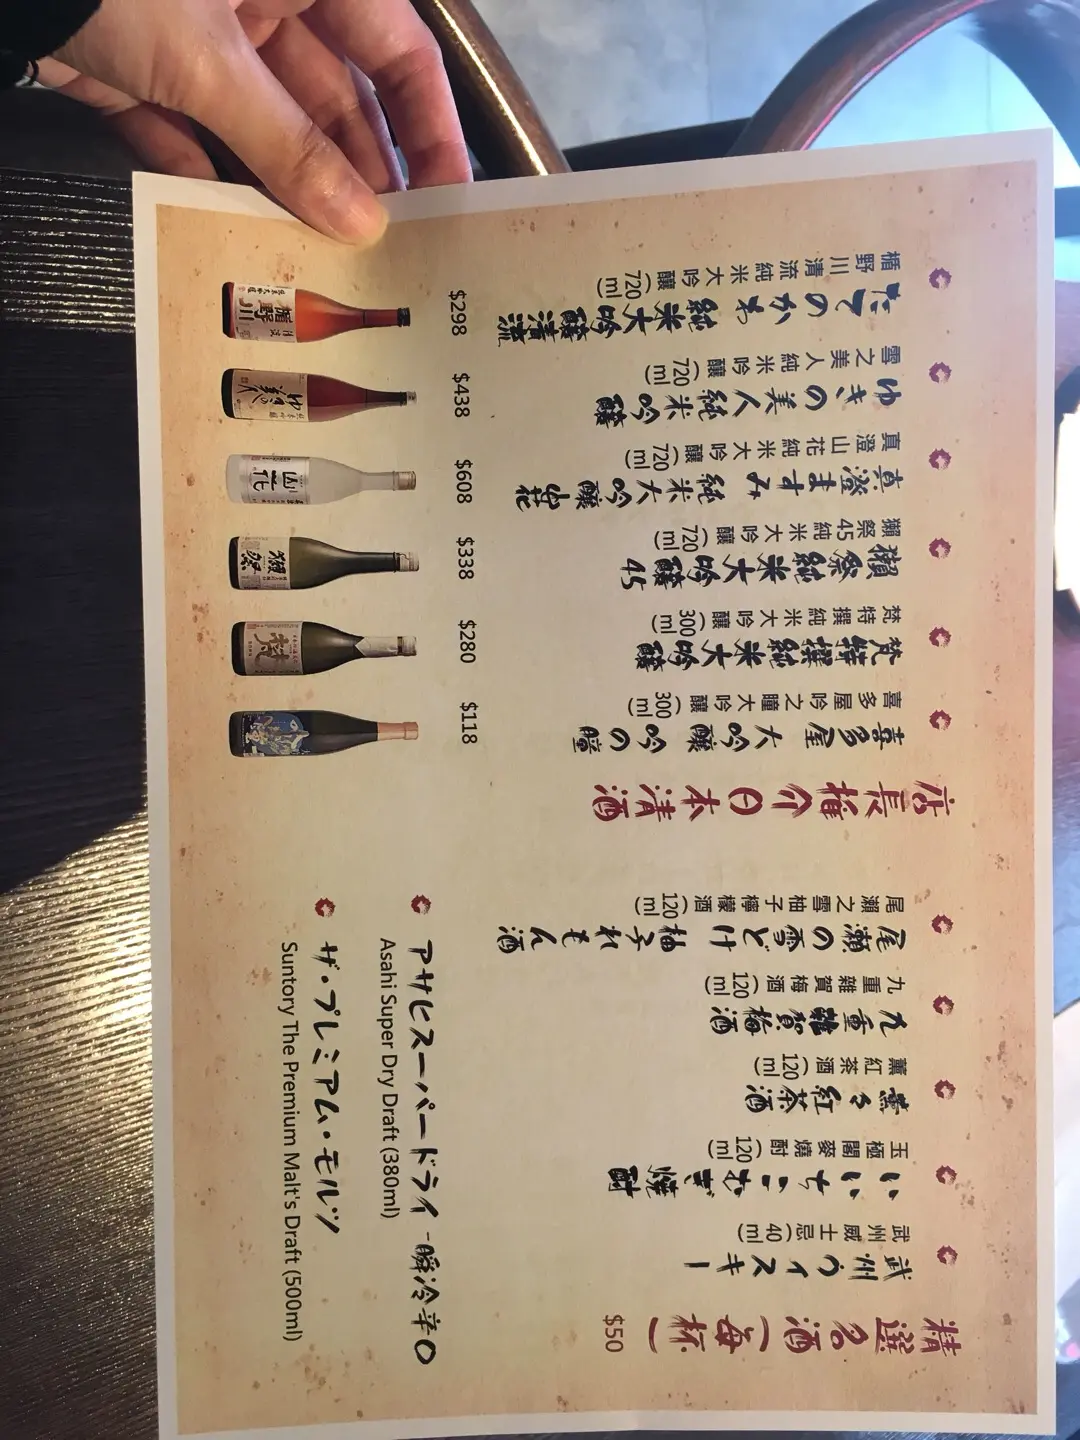 精選名酒(每杯)
$50
武州ウイスキー
武州威士忌(40ml)
いいちこむぎ焼酎
玉極閣麥燒酎(120ml)
薫る紅茶酒
薰紅茶酒(120ml)
九重雜賀梅酒
九重雜賀梅酒(120ml)
尾瀬の雪どけ 柚子れもん酒
尾瀨之雪柚子檸檬酒(120ml)
アサヒスーパードライ -瞬冷辛口
Asahi Super Dry Draft (380ml)
ザ・プレミアム・モルツ
Suntory The Premium Malt's Draft (500ml)
店長推介日本清酒
喜多屋 大吟醸 吟の瞳
喜多屋吟之瞳大吟釀(300ml)
$118
梵特撰純米大吟醸
梵特撰純米大吟釀(300ml)
$280
梵
獺祭純米大吟醸45
獺祭45純米大吟釀(720ml)
$338
獺祭
真澄ますみ 純米大吟醸 山花
真澄山花純米大吟釀(720ml)
$608
山花
ゆきの美人 純米吟醸
雪之美人純米吟釀(720ml)
$438
ゆきの美人
たてのかわ 純米大吟醸清流
楯野川清流純米大吟釀(720ml)
$298
楯野川